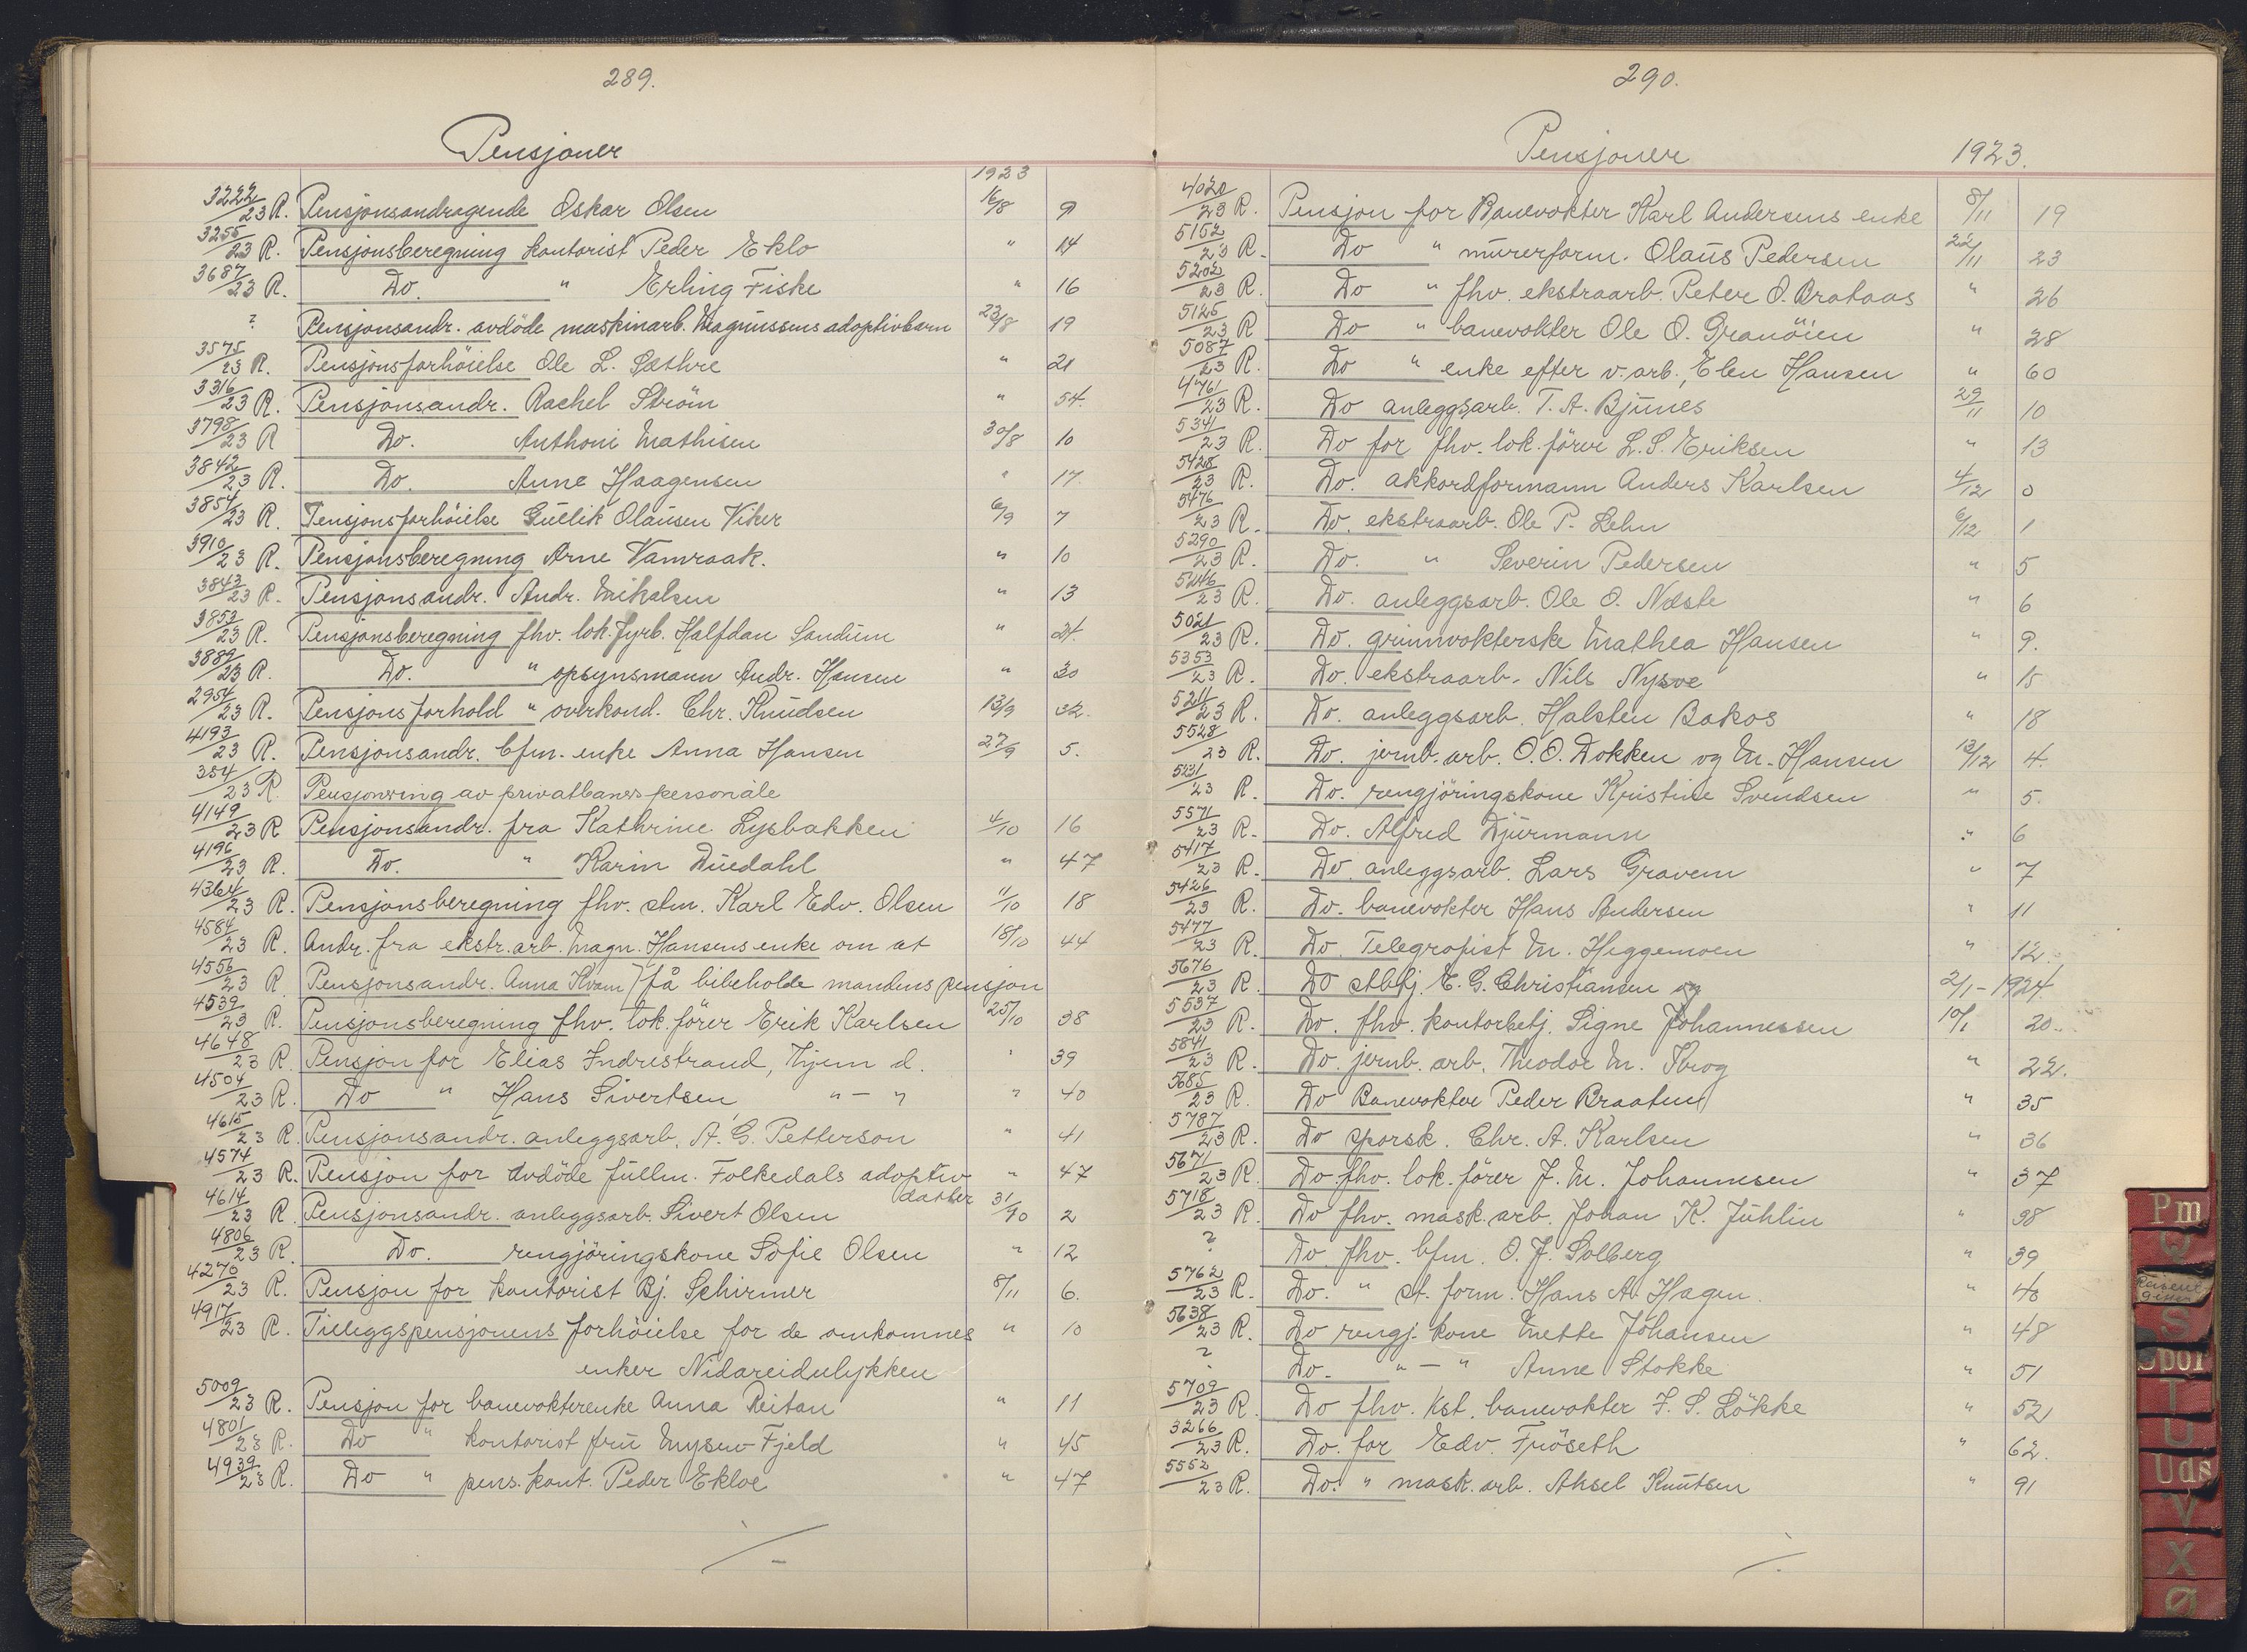 289.
Pensjoner
1923
3222/23 R. Pensjonsandragende Oskar Olsen 16/8 9
3255/23 R. Pensjonsberegning kontorist Peder Eklo " 14
3687/23 R. Do. " Erling Fiske " 16
? Pensjonsandr. avdöde maskinarb. Magnussens adoptivbarn 23/8 19
3575/23 R. Pensjonsforhöielse Ole L. Sæthre " 21
3316/23 R. Pensjonsandr. Rachel Ström " 54.
3798/23 R Do. Anthoni Mathisen 30/8 10
3842/23 R. Do. Anne Haagensen " 17.
3854/23 R. Pensjonsforhöielse Gullik Olausen Viker 6/9 7
3910/23 R. Pensjonsberegning Arne Vamraak. " 10
3843/23 R. Pensjonsandr. Andr. Mikalsen " 13
3853/23 R. Pensjonsberegning fhv. lok.fyrb. Halfdan Sandum " 21.
3889/23 R. Do. " opsynsmann Andr. Hansen " 30
2954/23 R. Pensjonsforhold " overkond. Chr. Knudsen 13/9 32.
4193/23 R. Pensjonsandr. bfm. enke Anna Hansen 27/9 5.
354/23 R. Pensjonering av privatbaners personale
4149/23 R Pensjonsandr. fra Kathrine Lysbakken 4/10 16
4196/23 R. Do. " Karin Duedahl " 47
4364/23 R. Pensjonsberegning fhv. stm. Karl Edv. Olsen 11/10 18
4584/23 R. Andr. fra ekstr.arb. Magn. Hansens enke om at 18/10 44
4556/23 R. Pensjonsandr. Anna Kvam / få bibeholde mandens pensjon
4539/23 R. Pensjonsberegning fhv. lok.förer Erik Karlsen 25/10 38
4648/23 R. Pensjon for Elias Indrestrand, Hjem d. " 39
4504/23 R. Do " Hans Sivertsen " — " " 40
4615/23 R. Pensjonsandr. anleggsarb. A. G. Petterson " 41
4574/23 R. Pensjon for avdöde fullm. Folkedals adoptiv " 47
datter
4614/23 R. Pensjonsandr. anleggsarb. Sivert Olsen 31/10 2
4806/23 R. Do. rengjöringskone Sofie Olsen " 12
4270/23 R. Pensjon for kontorist Bj. Schirmer 8/11 6.
4917/23 R. Tilleggspensjonens forhöielse for de omkomnes " 10
enker Nidareidulykken
5009/23 R. Pensjon for banevokterenke Anna Reitan " 11
4801/23 R. Do " kontorist fru Mysen-Fjeld " 45
4939/23 R. Do " pens. kont. Peder Ekloe " 47
290.
Pensjoner 1923.
4020/23 R. Pensjon for Banevokter Karl Andersens enke 8/11 19
5152/23 R. Do " murerform. Olaus Pedersen 22/11 23
5202/23 R. Do " fhv. ekstraarb. Peter O. Brataas " 26
5125/23 R Do " banevokter Ole O. Granöien " 28
5087/23 R. Do " enke efter v.arb., Elen Hansen " 60
4761/23 R. Do anleggsarb. T. A. Bjunes 29/11 10
5341/23 R. Do for fhv. lok.förer L. S. Eriksen " 13
5428/23 R. Do. akkordformann Anders Karlsen 4/12 0
5476/23 R. Do. ekstraarb. Ole P. Lehn 6/12 1
5290/23 R. Do. " Severin Pedersen " 5
5246/23 R. Do. anleggsarb. Ole O. Næste " 6
5021/23 R. Do. grinnvokterske Mathea Hansen " 9.
5353/23 R. Do. ekstraarb. Nils Nysve " 15
5211/23 R. Do. anleggsarb. Halsten Bakos " 18
5528/23 R. Do. jernb.arb. O. O. Dokken og M. Hansen 13/12 4.
5231/23 R. Do. rengjöringskone Kristine Svendsen " 5.
5571/23 R. Do. Alfred Djurmann " 6
5417/23 R. Do anleggsarb. Lars Gravem " 7
5426/23 R. Do. banevokter Hans Andersen " 11
5477/23 R. Do. Telegrafist M. Heggemoen " 12.
5676/23 R. Do stbtj. E. G. Christiansen og 2/1 - 1924.
5537/23 R. Do. fhv. kontorbetj. Signe Johannessen 10/1 20.
5841/23 R. Do. jernb. arb. Theodor M. Krog " 22.
5685/23 R. Do Banevokter Peder Braaten " 35
5787/23 R. Do sporsk. Chr. A. Karlsen " 36
5671/23 R. Do fhv. lok. förer J. M. Johannesen " 37
5718/23 R. Do fhv. mask.arb. Johan K. Juhlin " 38
? Do fhv. bfm. O. J. Solberg " 39
5762/23 R. Do. " st. form. Hans A. Hagen. " 40
5638/23 R. Do rengj. kone Mette Johansen " 48
? Do. " — " Anne Stokke " 51
5709/23 R. Do fhv. kst. banevokter J. S. Lökke " 52
3266/23 R. Do. for Edv. Fröseth " 62.
5552/23 R. Do. " mask.arb. Aksel Knutsen " 91
Pm
Q
S
Spor
T
U
Uds
V
X
Ø